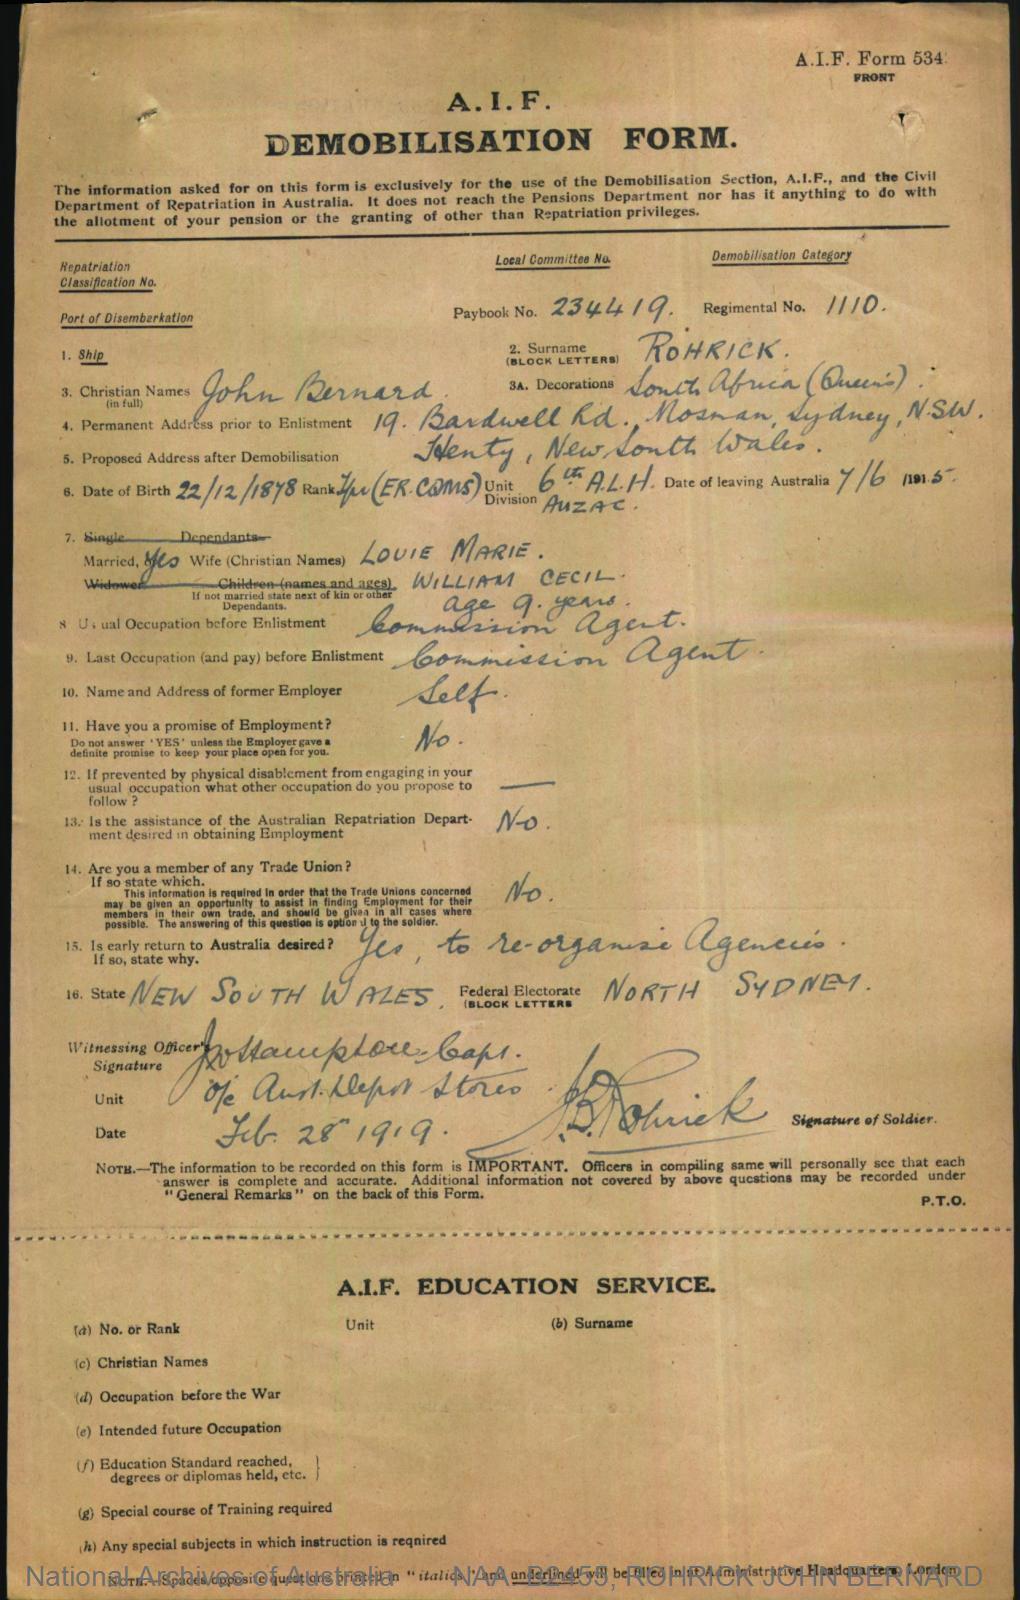 A.I.F. Form 534
FRONT
A. I. F.
DEMOBILISATION FORM.
The information asked for on this form is exclusively for the use of the Demobilisation Section, A.I.F., and the Civil
Department of Repatriation in Australia. It does not reach the Pensions Department nor has it anything to do with
the allotment of your pension or the granting of other than Repatriation privileges.
Repatriation
Classification No.
Local Committee No.
Demobilisation Category
Port of Disembarkation
Paybook No. 234419. Regimental No. 1110.
1. Ship
2. Surname ROHRICK.
(BLOCK LETTERS)
3. Christian Names John Bernard.
(in full)
3A. Decorations South Africa (Queens).
4. Permanent Address prior to Enlistment 19. Bardwell Rd., Mosman, Sydney, N.S.W.
5. Proposed Address after Demobilisation Henty, New South Wales.
6. Date of Birth 22/12/1878 Rank Tpr (ER. CQMS) Unit 6th A.L.H. Date of leaving Australia 7/6/1915.
Division ANZAC.
7. Single Dependants
Married, Yes Wife (Christian Names) LOUIE MARIE.
Widower Children (names and ages) WILLIAM CECIL.
If not married state next of kin or other
Dependants.
age 9. years.
8 Usual Occupation before Enlistment Commission Agent.
9. Last Occupation (and pay) before Enlistment Commission Agent.
10. Name and Address of former Employer Self.
11. Have you a promise of Employment?
Do not answer 'YES' unless the Employer gave a
definite promise to keep your place open for you.
No.
12. If prevented by physical disablement from engaging in your
usual occupation what other occupation do you propose to
follow ?
—
13. Is the assistance of the Australian Repatriation Depart-
ment desired in obtaining Employment
No.
14. Are you a member of any Trade Union?
If so state which.
This information is required in order that the Trade Unions concerned
may be given an opportunity to assist in finding Employment for their
members in their own trade, and should be given in all cases where
possible. The answering of this question is optional to the soldier.
No.
15. Is early return to Australia desired? Yes, to re-organise Agencies.
If so, state why.
16. State NEW SOUTH WALES. Federal Electorate NORTH SYDNEY.
(BLOCK LETTERS
Witnessing Officer's Hampton Capt.
Signature
Unit o/c Aust. Depot Stores
J.B. Rohrick Signature of Soldier.
Date Feb. 28th 1919.
NOTE.—The information to be recorded on this form is IMPORTANT. Officers in compiling same will personally see that each
answer is complete and accurate. Additional information not covered by above questions may be recorded under
"General Remarks" on the back of this Form.
P.T.O.
A.I.F. EDUCATION SERVICE.
(a) No. or Rank Unit (b) Surname
(c) Christian Names
(d) Occupation before the War
(e) Intended future Occupation
(f) Education Standard reached,
degrees or diplomas held, etc. }
(g) Special course of Training required
(h) Any special subjects in which instruction is required
NOTE.—Spaces opposite questions printed in "italics" and underlined will be filled in at Administrative Headquarters, London
National Archives of Australia NAA: B2455, ROHRICK JOHN BERNARD